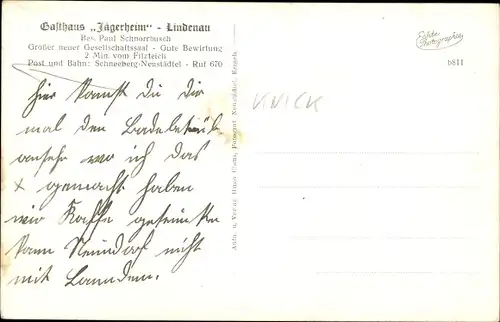 Gasthaus „Jägerheim" - Lindenau
Bes. Paul Schnorrbusch
Großer neuer Gesellschaftssaal - Gute Bewirtung
2 Min. vom Filzteich
Post und Bahn: Schneeberg-Neustädtel - Ruf 670
Echte Photographie
b811
KNICK
Hier kannst du dir
mal den
ansehn wo ich das
x gemacht haben
wir Kaffe getrunken
kann nicht
mit